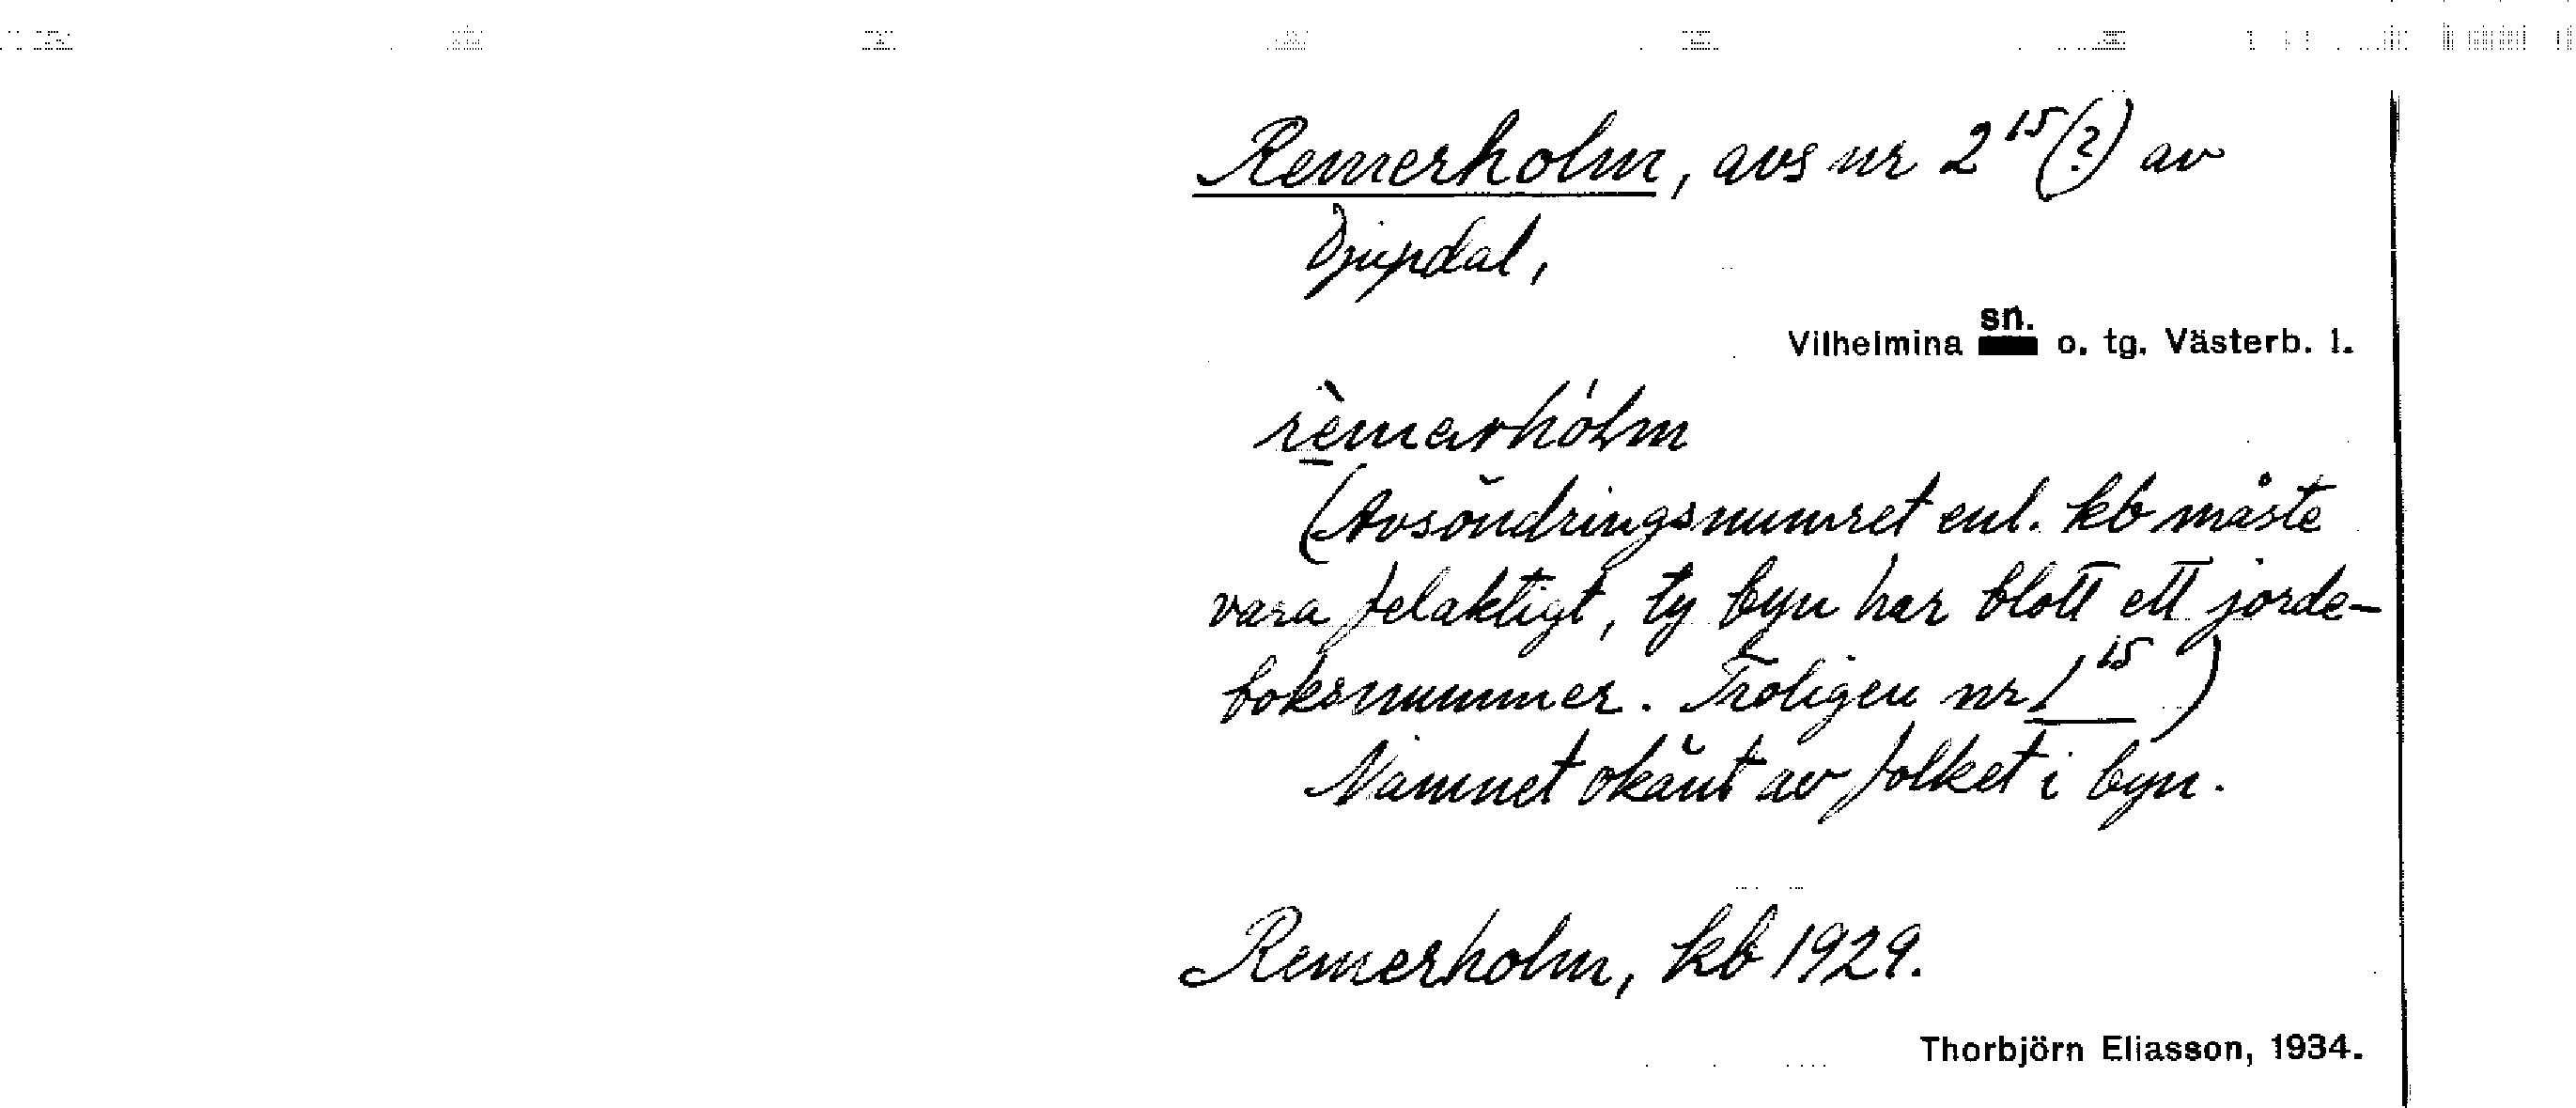 Remerholm, avs nr 2¹⁵(?) av
Djupdal,
Vilhelmina sn. o. tg. Västerb. l.
rèmerhólm
(Avsöndringsnumret enl. kb måste
vara felaktigt, ty byn har blott ett jorde-
boksnummer. Troligen nr 1¹⁵)
Namnet okänt av folket i byn.
Remerholm, kb 1929.
Thorbjörn Eliasson, 1934.